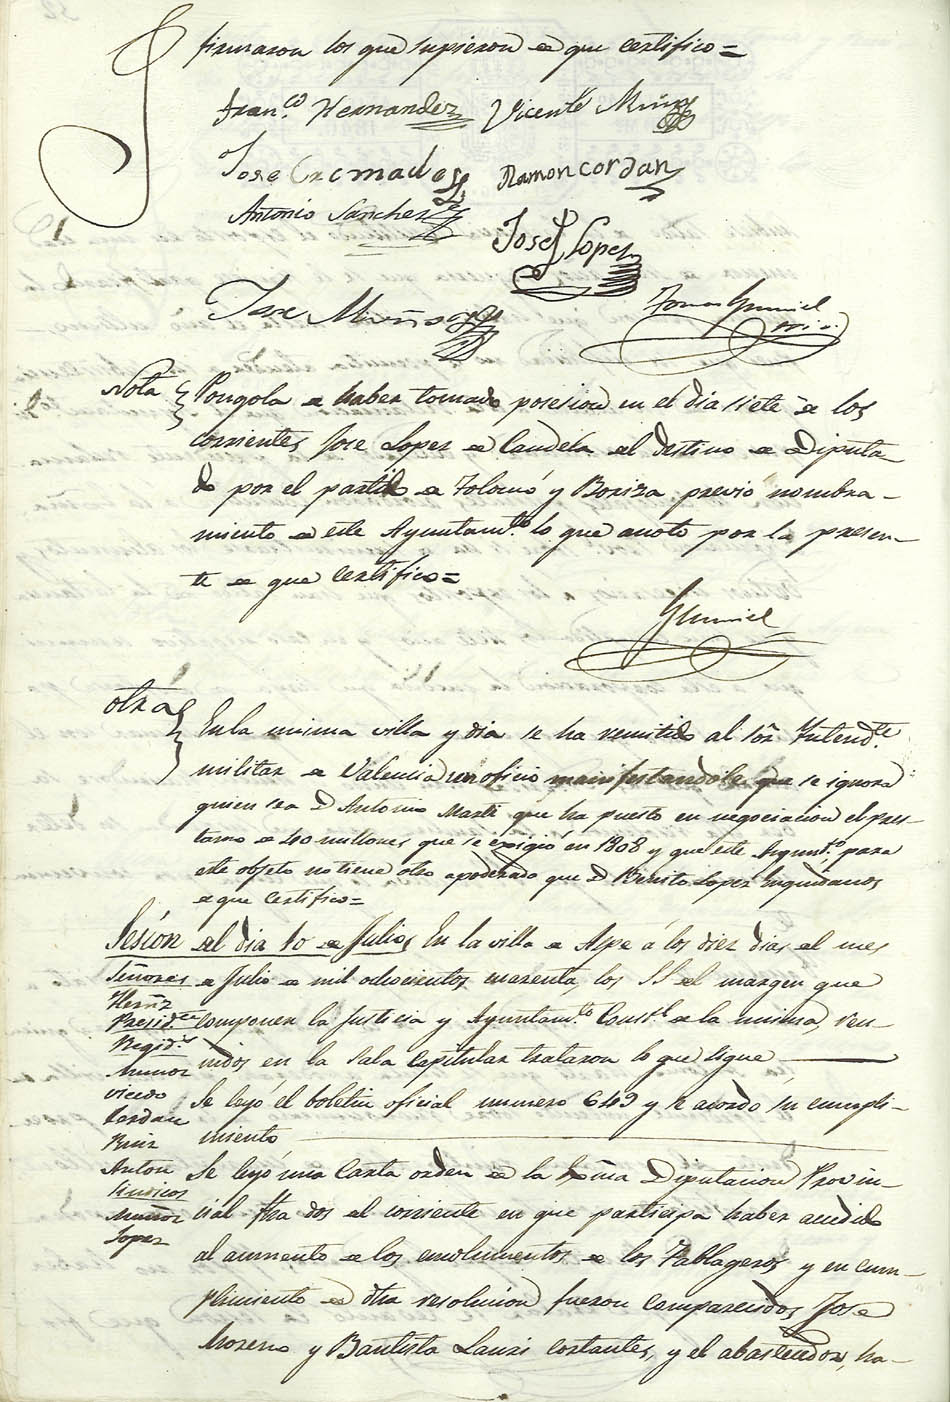 firmaron los que supieron de que certifico=
Fran.co Hernandez Vicente Muñoz
Jose Cremades Ramon cordan
Antonio Sanchez
Jose Lopez
Jose Muñoz Tomas Gumiel
srio.
Nota Pongola de haber tomado posesion en el dia siete de los
corrientes Jose Lopez de Candela del destino de Diputa-
do por el partido de Tolomó y Boriza, previo nombra-
miento de este Ayuntam.to lo que anoto por la presen-
te de que certifico=
Gumiel
otra En la misma villa y dia se ha remitido al Sor. Yntend.te
militar de Valencia un oficio manifestandole que se ignora
quien sea D. Antonio Marti que ha puesto en negociacion el pres-
tamo de 40 millones que se exigió en 1808 y que este Ayunt.to para
este objeto no tiene otro apoderado que D. Benito Lopez Enguidanos
de que Certifico=
Sesión del dia 10 de Julio, En la villa de Aspe á los diez dias del mes
Señores de Julio de mil ochocientos cuarenta, los SS del margen que
Hernz
Presid.te componen la Justicia y Ayuntam.to Const.l de la misma, reu-
Regid.s nidos en la Sala Capitular trataron lo que sigue
Muñoz
vicedo Se leyó el boletin oficial numero 649 y se acordó su cumpli-
Cordan
Ruiz miento
Anton Se leyó una Carta orden de la Exma Diputacion Provin-
Sindicos
Muñoz cial fha dos del corriente en que participa haber accedido
Lopez
al aumento de los emolumentos de los Tablageros y en cum-
plimiento de dha resolucion fueron comparecidos Jose
Moreno y Bautista Lauri cortantes, y el abastecedor, ha-